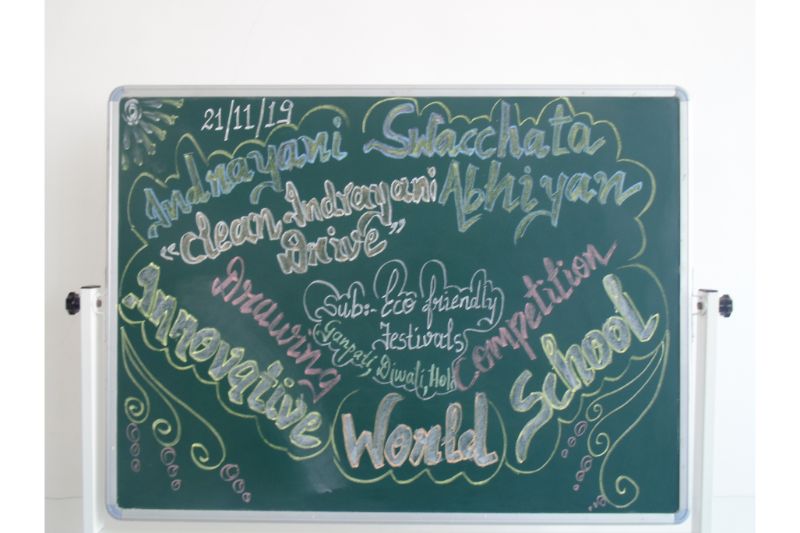 21/11/19
Indrayani Swacchata
Abhiyan
"Clean Indrayani
Drive"
Drawing Competition
Sub:- Eco friendly
Festivals
Ganpati, Diwali, Holi
Innovative World School